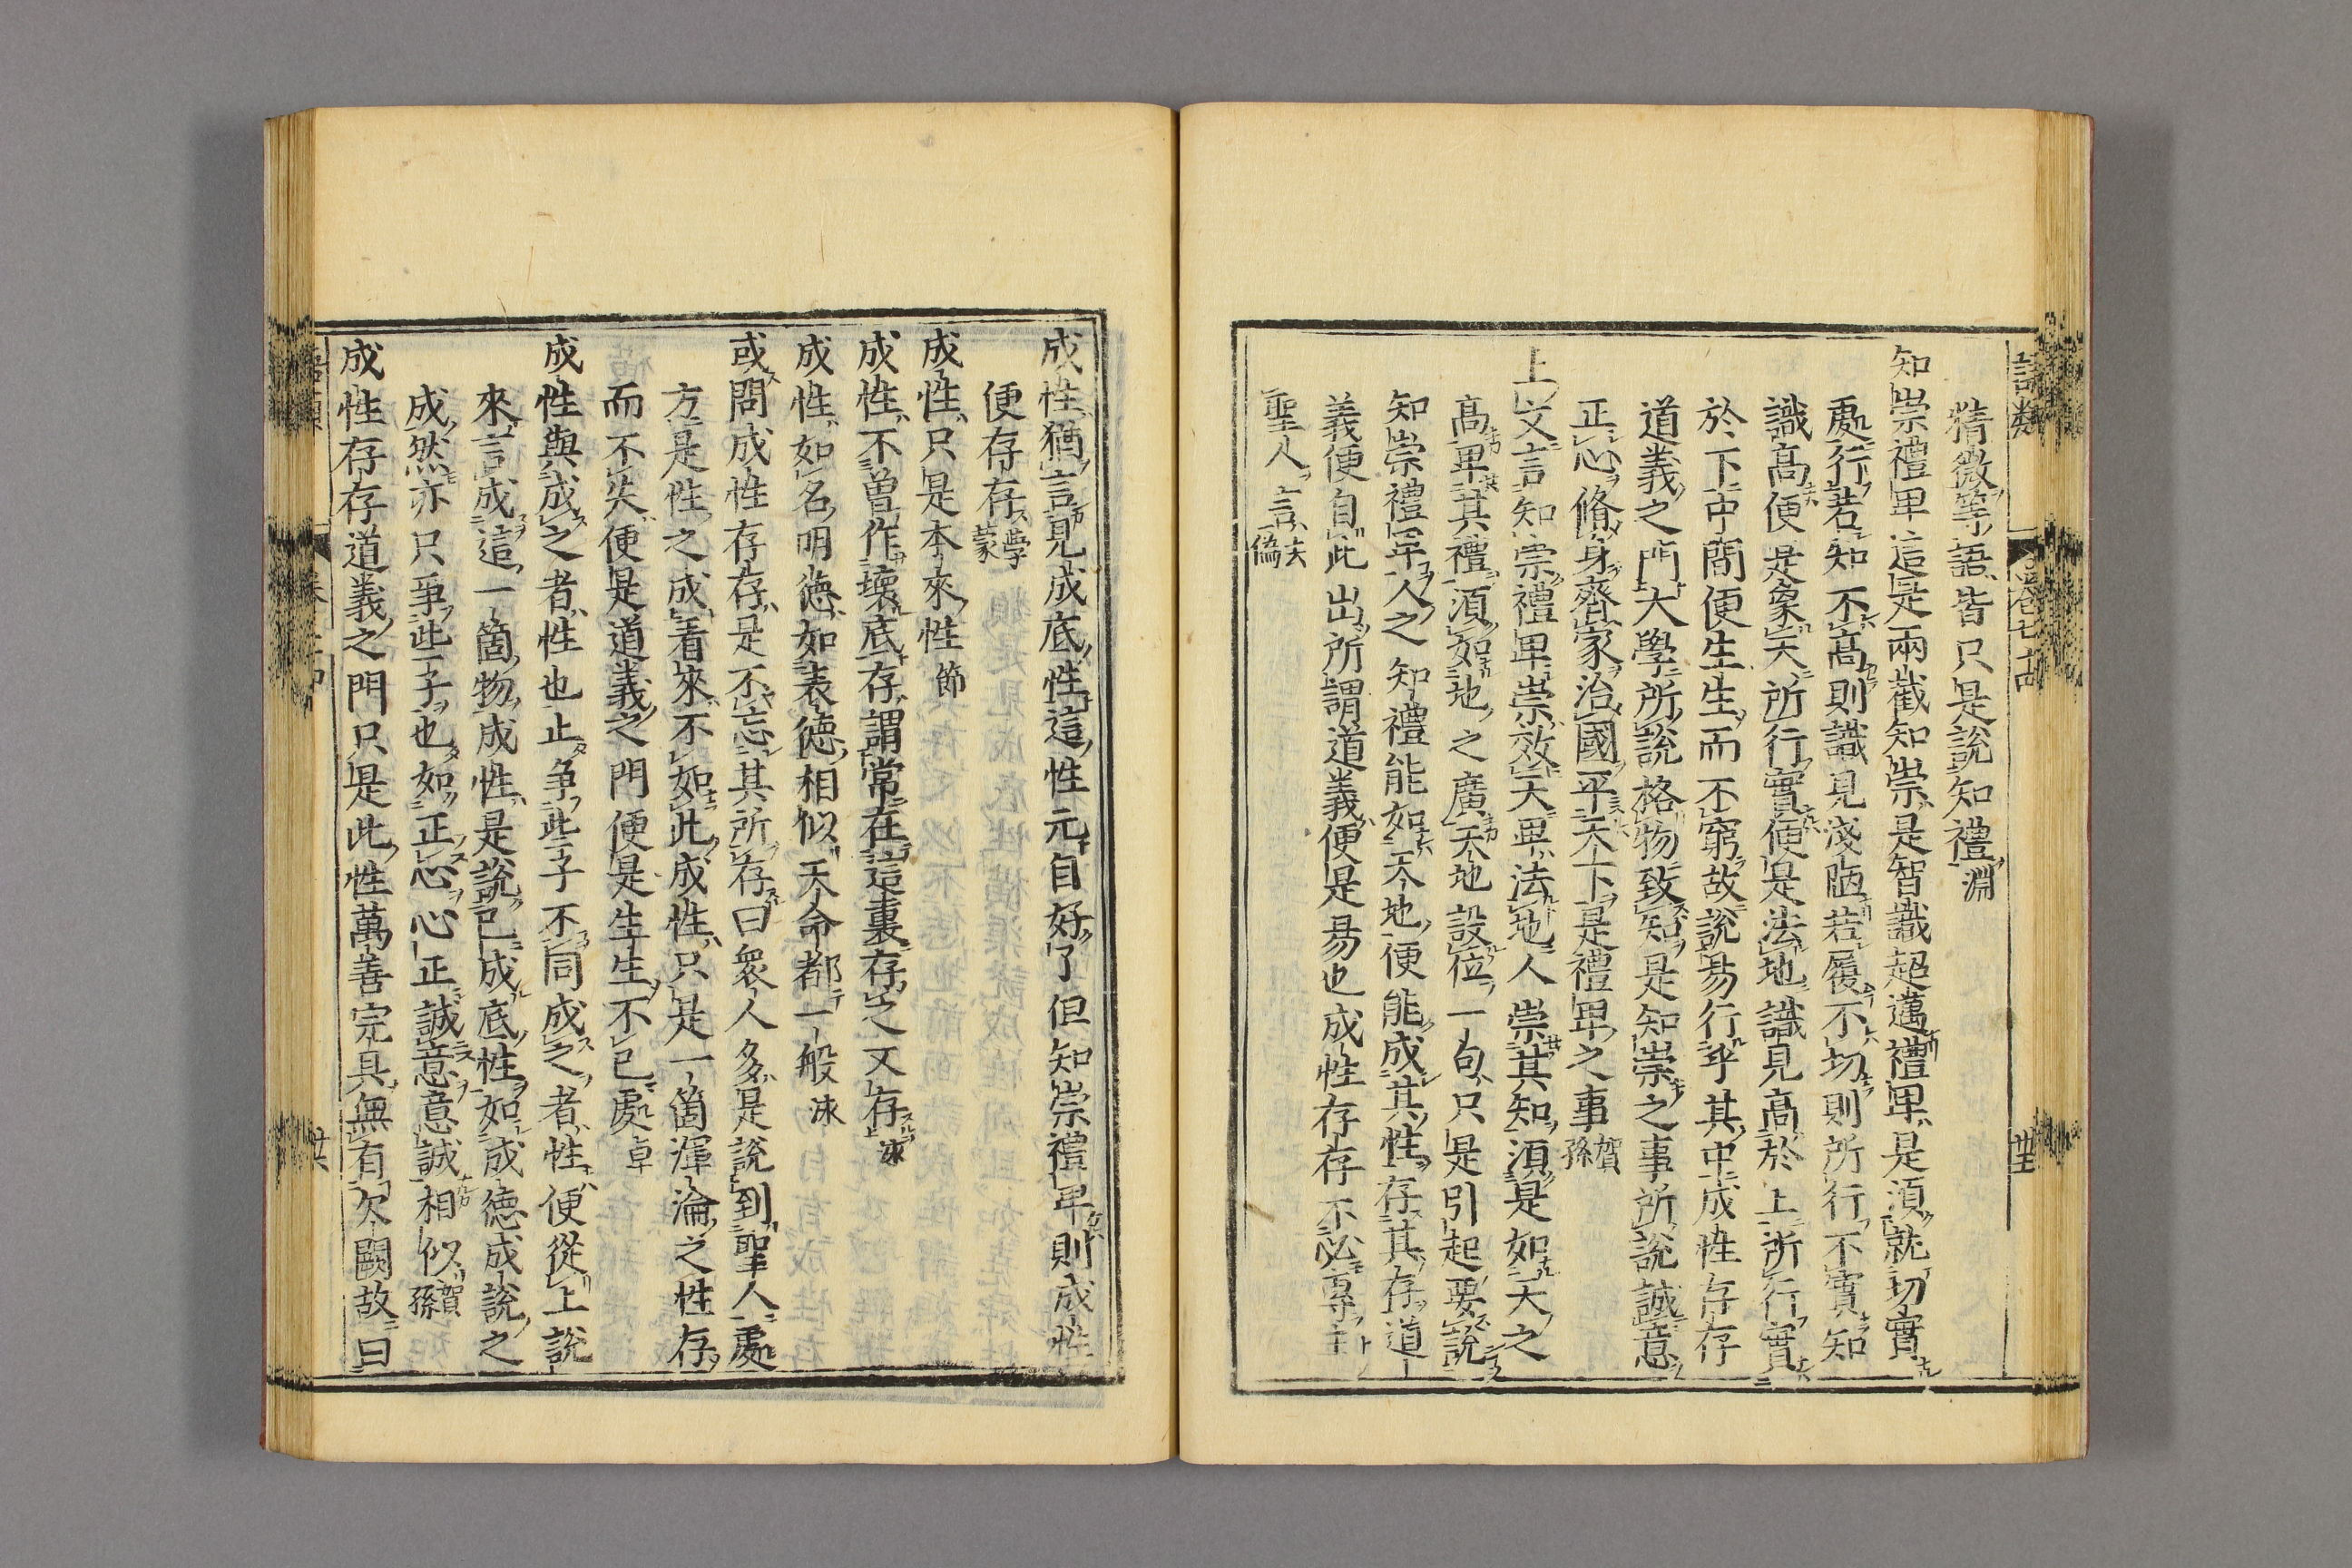 語類 卷七十四 廿五
精微等語皆只是說知禮淵
知崇禮卑這是兩截知崇是智識超邁禮卑是須就切實
處行若知不高則識見淺陋若履不切則所行不實知
識高便是象天所行實便是法地識見高於上所行實
於下中間便生生而不窮故說易行乎其中成性存存
道義之門大學所說格物致知是知崇之事所說誠意
正心脩身齊家治國平天下是禮卑之事賀孫
上文言知崇禮卑崇效天卑法地人崇其知須是如天之
高卑其禮須如地之廣天地設位一句只是引起要說
知崇禮卑人之知禮能如天地便能成其性存其存道
義便自此出所謂道義便是易也成性存存不必專主
聖人言去僞
成性猶言見成底性這性元自好了但知崇禮卑則成性
便存存學蒙
成性只是本來性節
成性不曾作壞底存謂常在這裏存之又存泳
成性如名明德如表德相似天命都一般泳
或問成性存存是不忘其所存曰衆人多是說到聖人處
方是性之成看來不如此成性只是一箇渾淪之性存
而不失便是道義之門便是生生不已處卓
成性與成之者性也止爭些子不同成之者性便從上說
來言成這一箇物成性是說已成底性如成德成說之
成然亦只爭些子也如正心心正誠意意誠相似賀孫
成性存存道義之門只是此性萬善完具無有欠闕故曰
語類 廿六